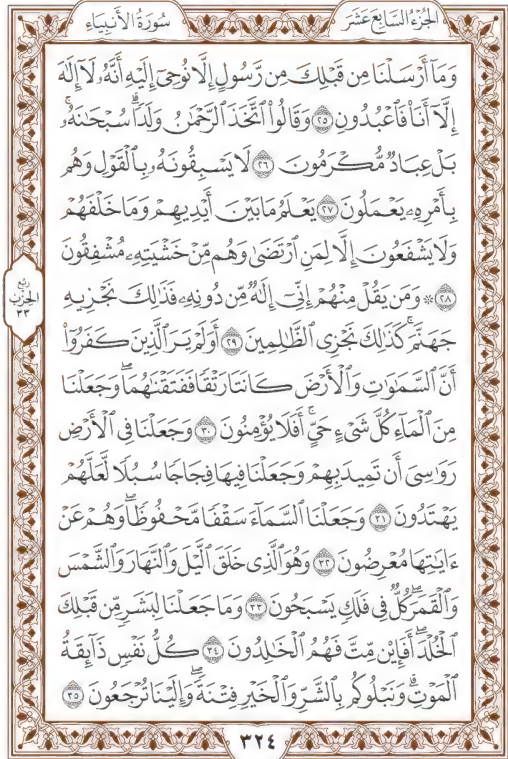 الجُزْءُ السَّابِعَ عَشَرَ
سُورَةُ الأَنبِيَاءِ
وَمَآ أَرۡسَلۡنَا مِن قَبۡلِكَ مِن رَّسُولٍ إِلَّا نُوحِيٓ إِلَيۡهِ أَنَّهُۥ لَآ إِلَٰهَ
إِلَّآ أَنَا۠ فَٱعۡبُدُونِ ٢٥ وَقَالُواْ ٱتَّخَذَ ٱلرَّحۡمَٰنُ وَلَدٗاۗ سُبۡحَٰنَهُۥۚ
بَلۡ عِبَادٞ مُّكۡرَمُونَ ٢٦ لَا يَسۡبِقُونَهُۥ بِٱلۡقَوۡلِ وَهُم
بِأَمۡرِهِۦ يَعۡمَلُونَ ٢٧ يَعۡلَمُ مَا بَيۡنَ أَيۡدِيهِمۡ وَمَا خَلۡفَهُمۡ
وَلَا يَشۡفَعُونَ إِلَّا لِمَنِ ٱرۡتَضَىٰ وَهُم مِّنۡ خَشۡيَتِهِۦ مُشۡفِقُونَ
٢٨ ۞ وَمَن يَقُلۡ مِنۡهُمۡ إِنِّيٓ إِلَٰهٞ مِّن دُونِهِۦ فَذَٰلِكَ نَجۡزِيهِ
جَهَنَّمَۚ كَذَٰلِكَ نَجۡزِي ٱلظَّٰلِمِينَ ٢٩ أَوَلَمۡ يَرَ ٱلَّذِينَ كَفَرُوٓاْ
أَنَّ ٱلسَّمَٰوَٰتِ وَٱلۡأَرۡضَ كَانَتَا رَتۡقٗا فَفَتَقۡنَٰهُمَاۖ وَجَعَلۡنَا
مِنَ ٱلۡمَآءِ كُلَّ شَيۡءٍ حَيٍّۚ أَفَلَا يُؤۡمِنُونَ ٣٠ وَجَعَلۡنَا فِي ٱلۡأَرۡضِ
رَوَٰسِيَ أَن تَمِيدَ بِهِمۡ وَجَعَلۡنَا فِيهَا فِجَاجٗا سُبُلٗا لَّعَلَّهُمۡ
يَهۡتَدُونَ ٣١ وَجَعَلۡنَا ٱلسَّمَآءَ سَقۡفٗا مَّحۡفُوظٗاۖ وَهُمۡ عَنۡ
ءَايَٰتِهَا مُعۡرِضُونَ ٣٢ وَهُوَ ٱلَّذِي خَلَقَ ٱلَّيۡلَ وَٱلنَّهَارَ وَٱلشَّمۡسَ
وَٱلۡقَمَرَۖ كُلّٞ فِي فَلَكٖ يَسۡبَحُونَ ٣٣ وَمَا جَعَلۡنَا لِبَشَرٖ مِّن قَبۡلِكَ
ٱلۡخُلۡدَۖ أَفَإِيْن مِّتَّ فَهُمُ ٱلۡخَٰلِدُونَ ٣٤ كُلُّ نَفۡسٖ ذَآئِقَةُ
ٱلۡمَوۡتِۗ وَنَبۡلُوكُم بِٱلشَّرِّ وَٱلۡخَيۡرِ فِتۡنَةٗۖ وَإِلَيۡنَا تُرۡجَعُونَ ٣٥
رُبْعُ
الحِزْبِ
٣٣
٣٢٤